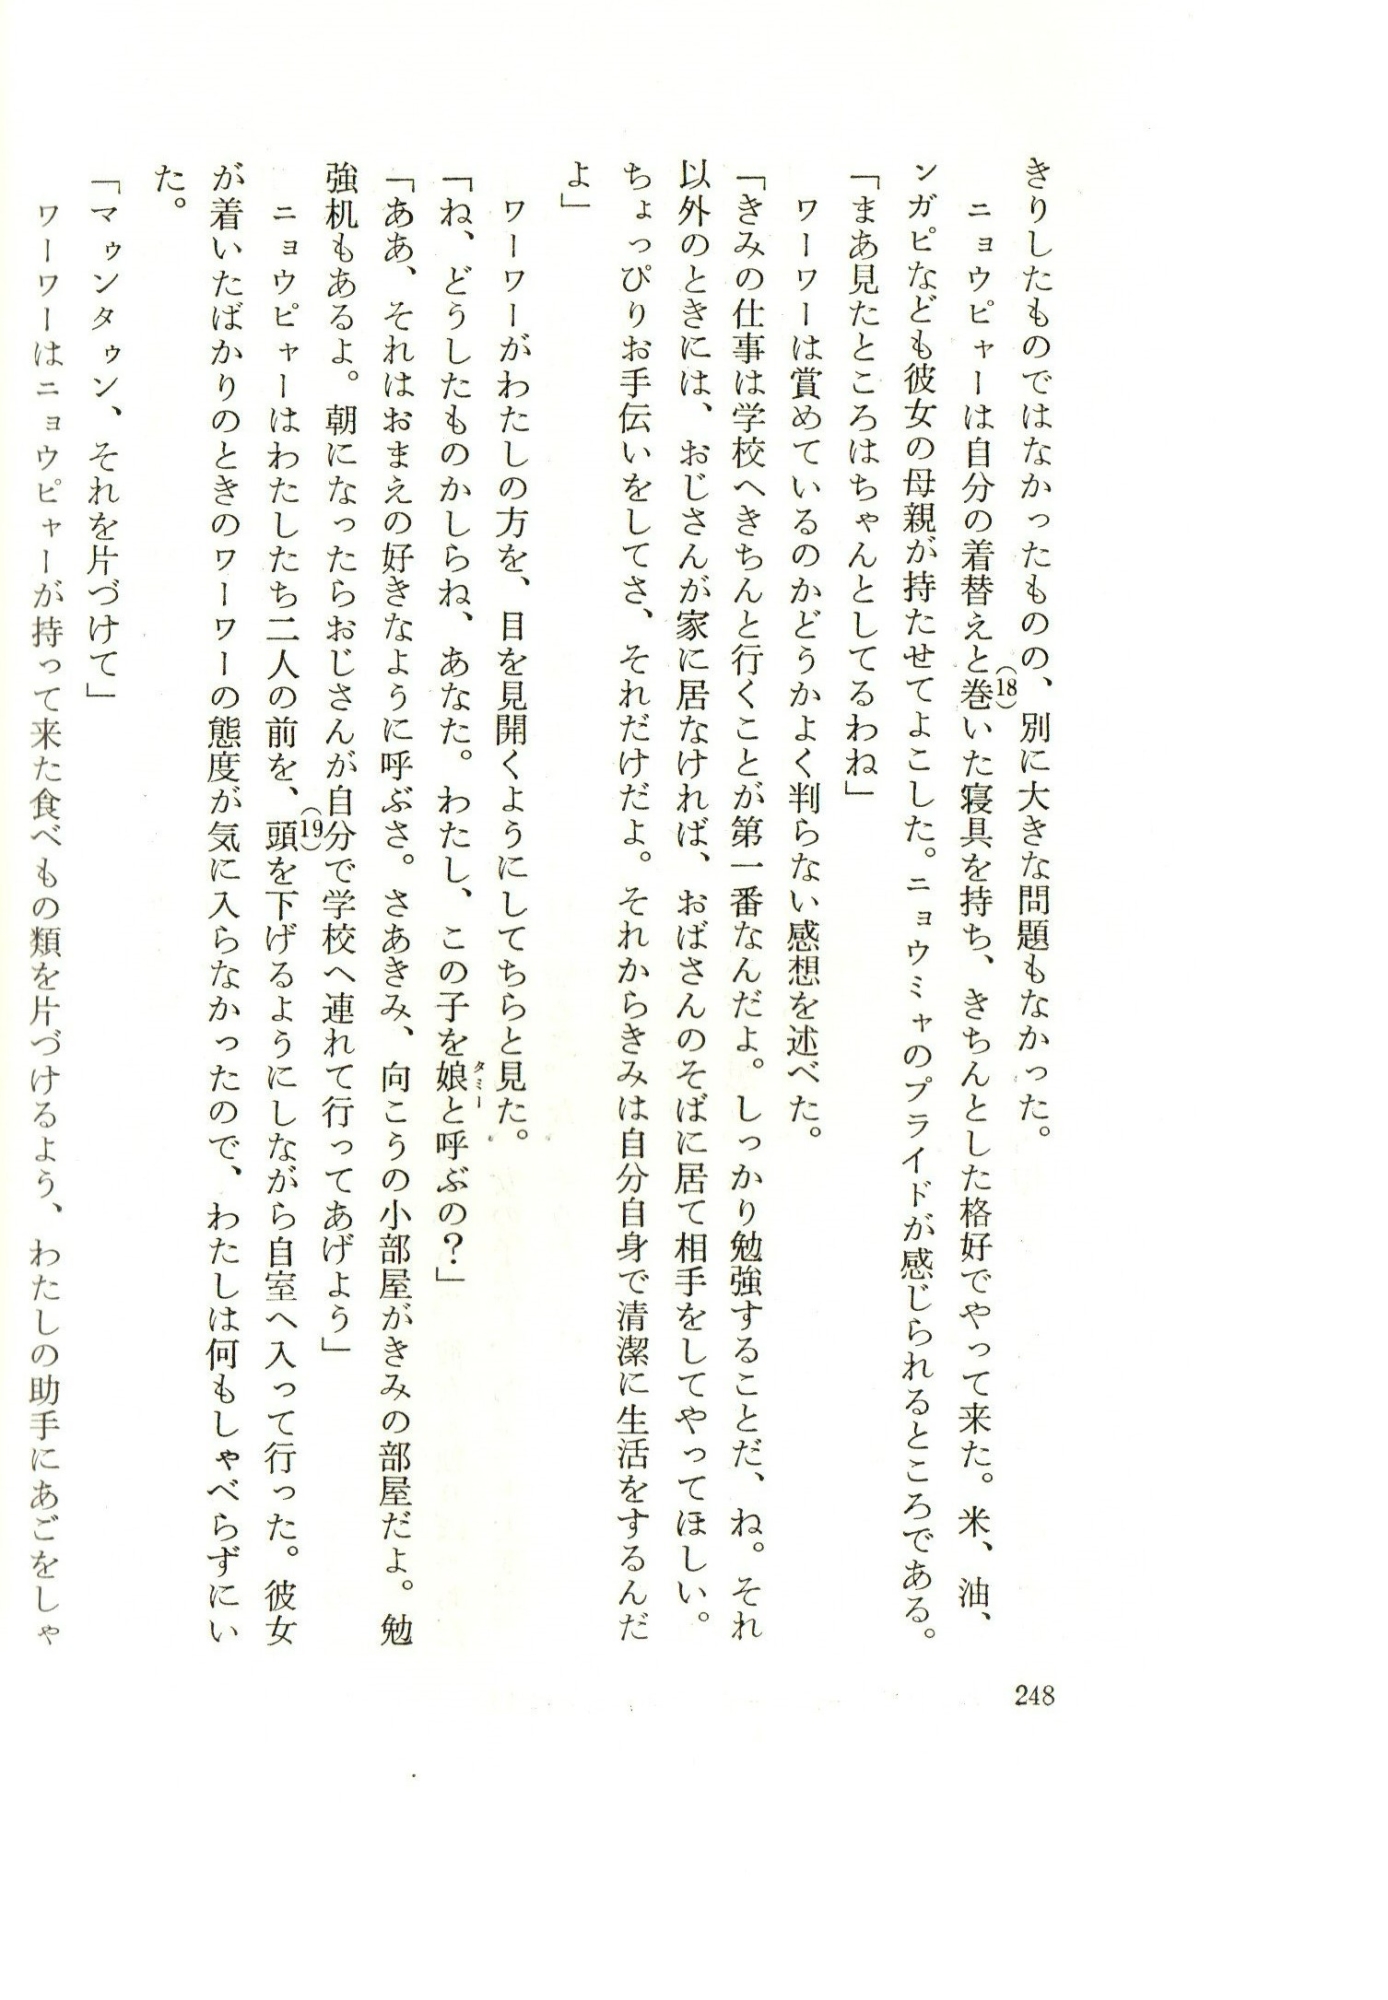 きりしたものではなかったものの、別に大きな問題もなかった。
ニョウピャーは自分の着替えと巻(18)いた寝具を持ち、きちんとした格好でやって来た。米、油、
ンガピなども彼女の母親が持たせてよこした。ニョウミャのプライドが感じられるところである。
「まあ見たところはちゃんとしてるわね」
ワーワーは賞めているのかどうかよく判らない感想を述べた。
「きみの仕事は学校へきちんと行くことが第一番なんだよ。しっかり勉強することだ、ね。それ
以外のときには、おじさんが家に居なければ、おばさんのそばに居て相手をしてやってほしい。
ちょっぴりお手伝いをしてさ、それだけだよ。それからきみは自分自身で清潔に生活をするんだ
よ」
ワーワーがわたしの方を、目を見開くようにしてちらと見た。
「ね、どうしたものかしらね、あなた。わたし、この子を娘タミーと呼ぶの？」
「ああ、それはおまえの好きなように呼ぶさ。さあきみ、向こうの小部屋がきみの部屋だよ。勉
強机もあるよ。朝になったらおじさんが自分で学校へ連れて行ってあげよう」
ニョウピャーはわたしたち二人の前を、頭(19)を下げるようにしながら自室へ入って行った。彼女
が着いたばかりのときのワーワーの態度が気に入らなかったので、わたしは何もしゃべらずにい
た。
「マゥンタゥン、それを片づけて」
ワーワーはニョウピャーが持って来た食べもの類を片づけるよう、わたしの助手にあごをしゃ
248